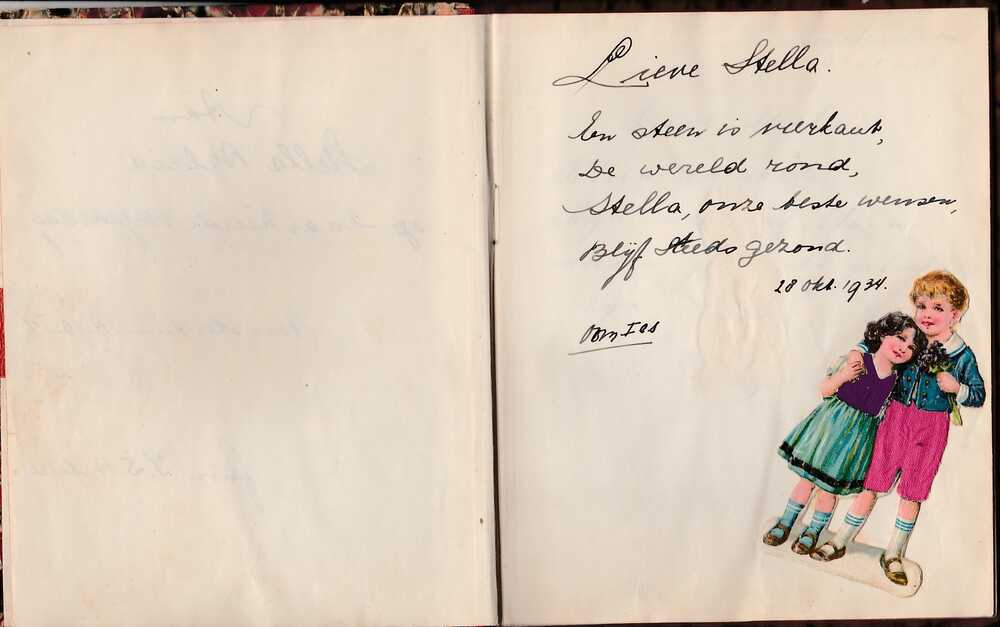 Lieve Stella.
Een steen is vierkant,
De wereld rond,
Stella, onze beste wensen,
Blijf steeds gezond.
28 Okt. 1934.
Oom Ies